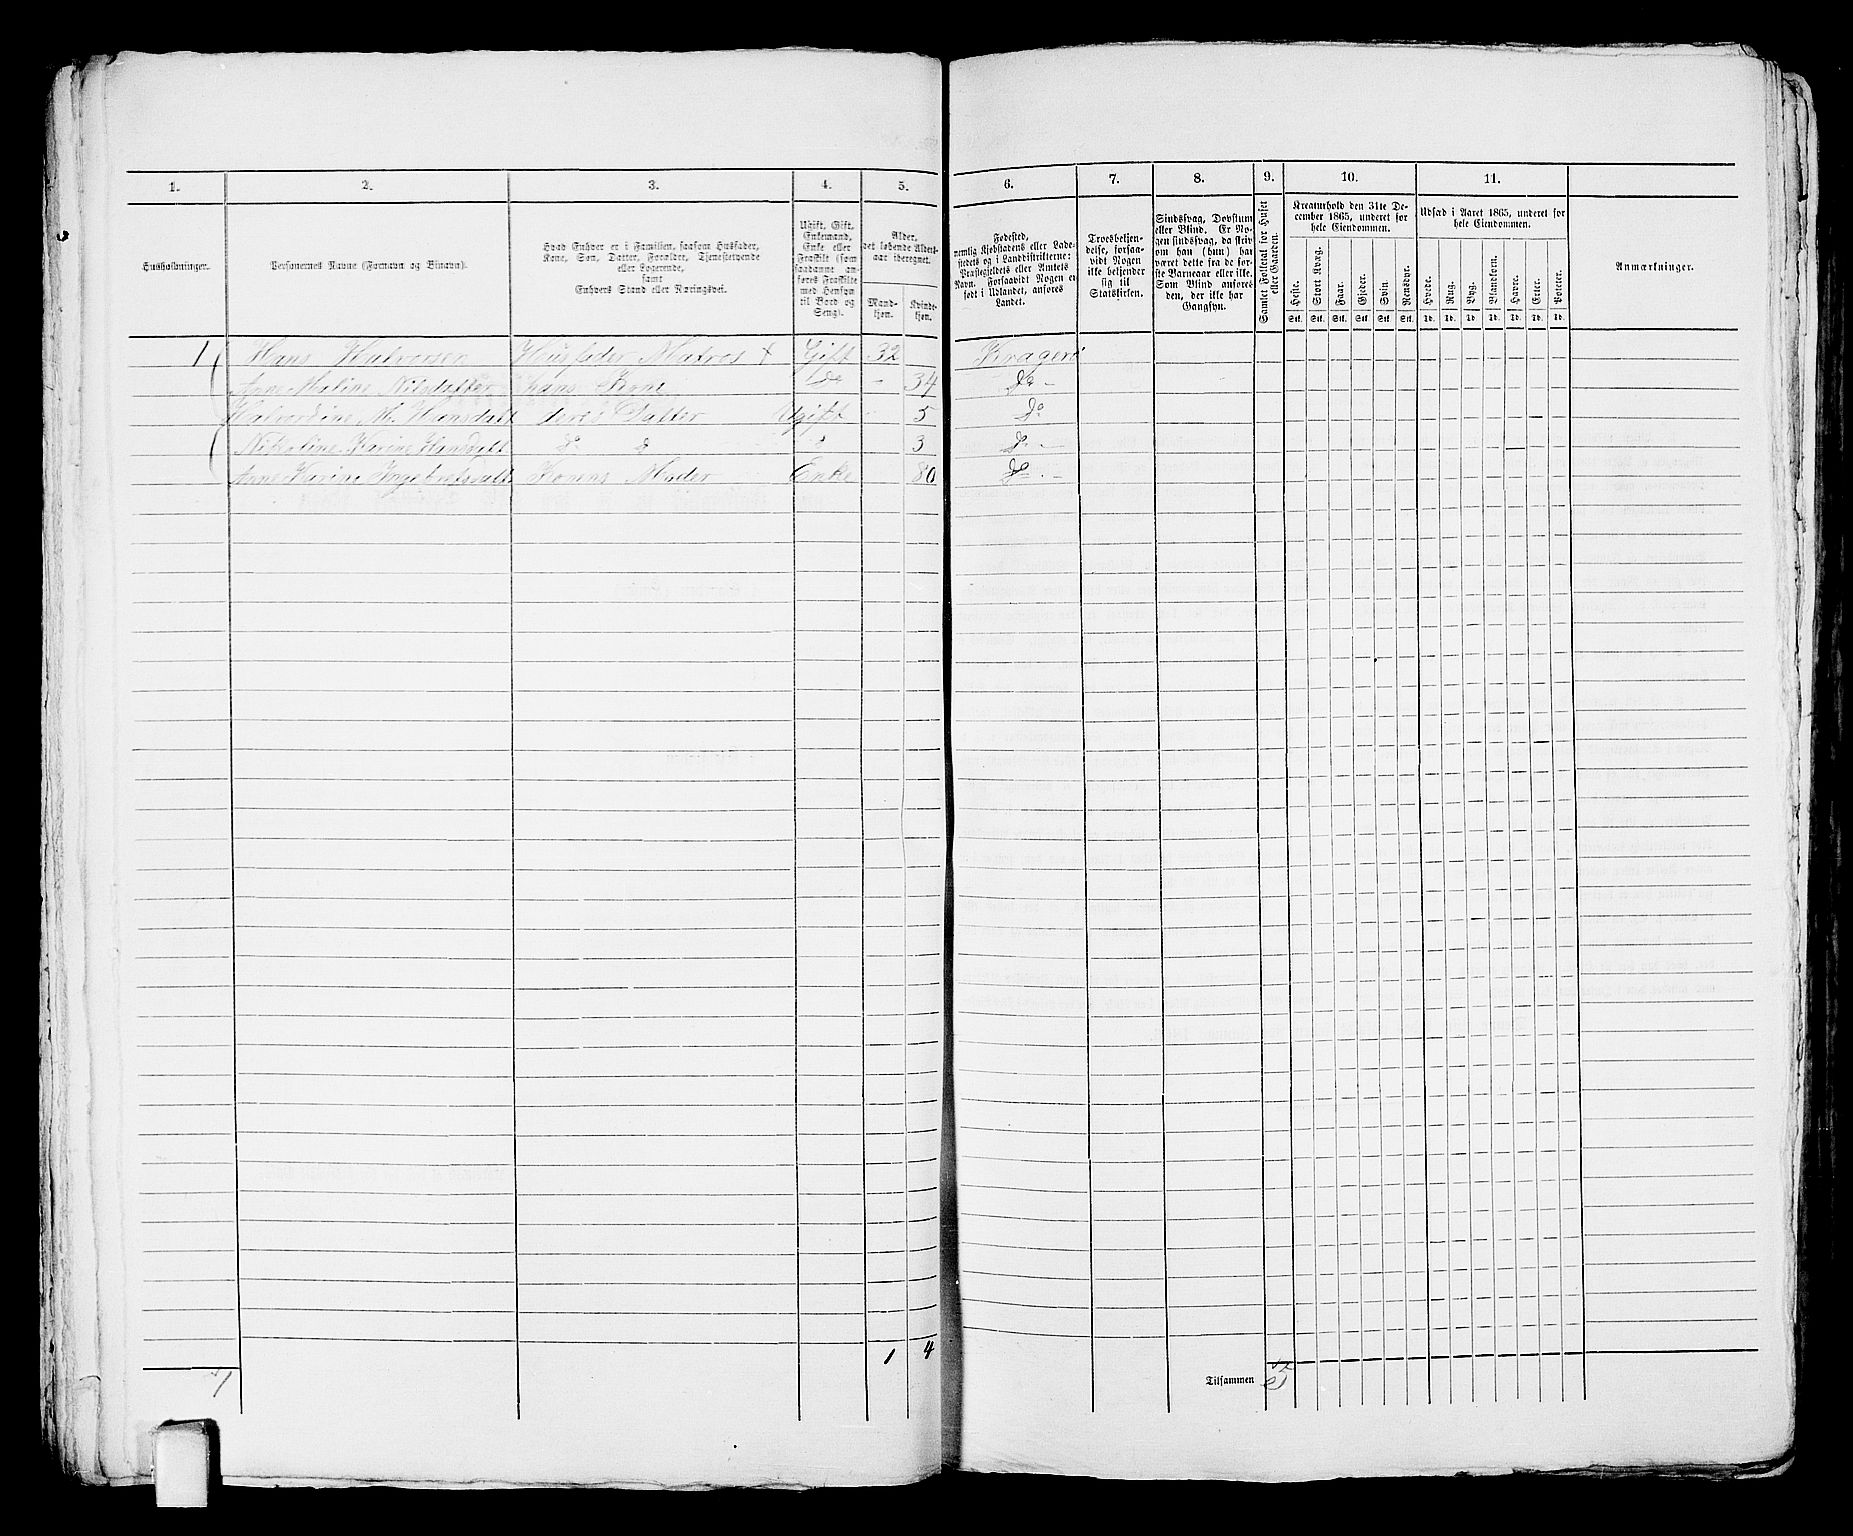 1. 2. 3. 4. 5. 6. 7. 8. 9. 10. 11.
Husholdninger.
Personernes Navne (Fornavn og Binavn).
Hvad Enhver er i Familien, saasom Husfader,
Kone, Søn, Datter, Forældre, Tjenestetyende
eller Logerende,
samt
Enhvers Stand eller Næringsvei.
Ugift, Gift,
Enkemand,
Enke eller
Fraskilt (som
saadanne an-
føres Fraskilte
med Hensyn
til Bord og
Seng).
Alder,
det løbende Alders-
aar iberegnet.
Mand-
kjøn.
Kvinde-
kjøn.
Fødested,
nemlig Kjøbstadens eller Lade-
stedets og i Landdistrikterne:
Præstegjeldets eller Amtets
Navn. Forsaavidt Nogen er
født i Udlandet, anføres
Landet.
Troesbekjen-
delse, forsaa-
vidt Nogen
ikke bekjender
sig til
Statskirken.
Sindssvag, Døvstum
eller Blind. Er No-
gen sindssvag, da skriv
om han (hun) har
været dette fra de før-
ste Barneaar eller ikke.
Som Blind anføres
den, der ikke har
Gangsyn.
Gamlet Folketal for Huset
eller Gaarden.
Kreaturhold den 31te De-
cember 1865, underet for
hele Eiendommen.
Heste. Stort Kvæg. Faar. Gjeder. Svin. Rensdyr.
Stk. Stk. Stk. Stk. Stk. Stk.
Udsæd i Aaret 1865, underet for
hele Eiendommen.
Hvede. Rug. Byg. Blandkorn. Havre. Erter. Poteter.
Td. Td. Td. Td. Td. Td. Td.
Anmærkninger.
1 Hans Halvorsen Husfader Matros + Gift 32 Kragerø
Anne Maline Nilsdatter hans Kone Do - 34 Do -
Halvordine M. Hansdatt deres Datter Ugift 5 Do
Nikoline Karine Hansdatt Do Do 3 Do -
Anne Karine Ingebretsdatt Konens Moder Enke 80 Do -
1 4
1
Tilsammen